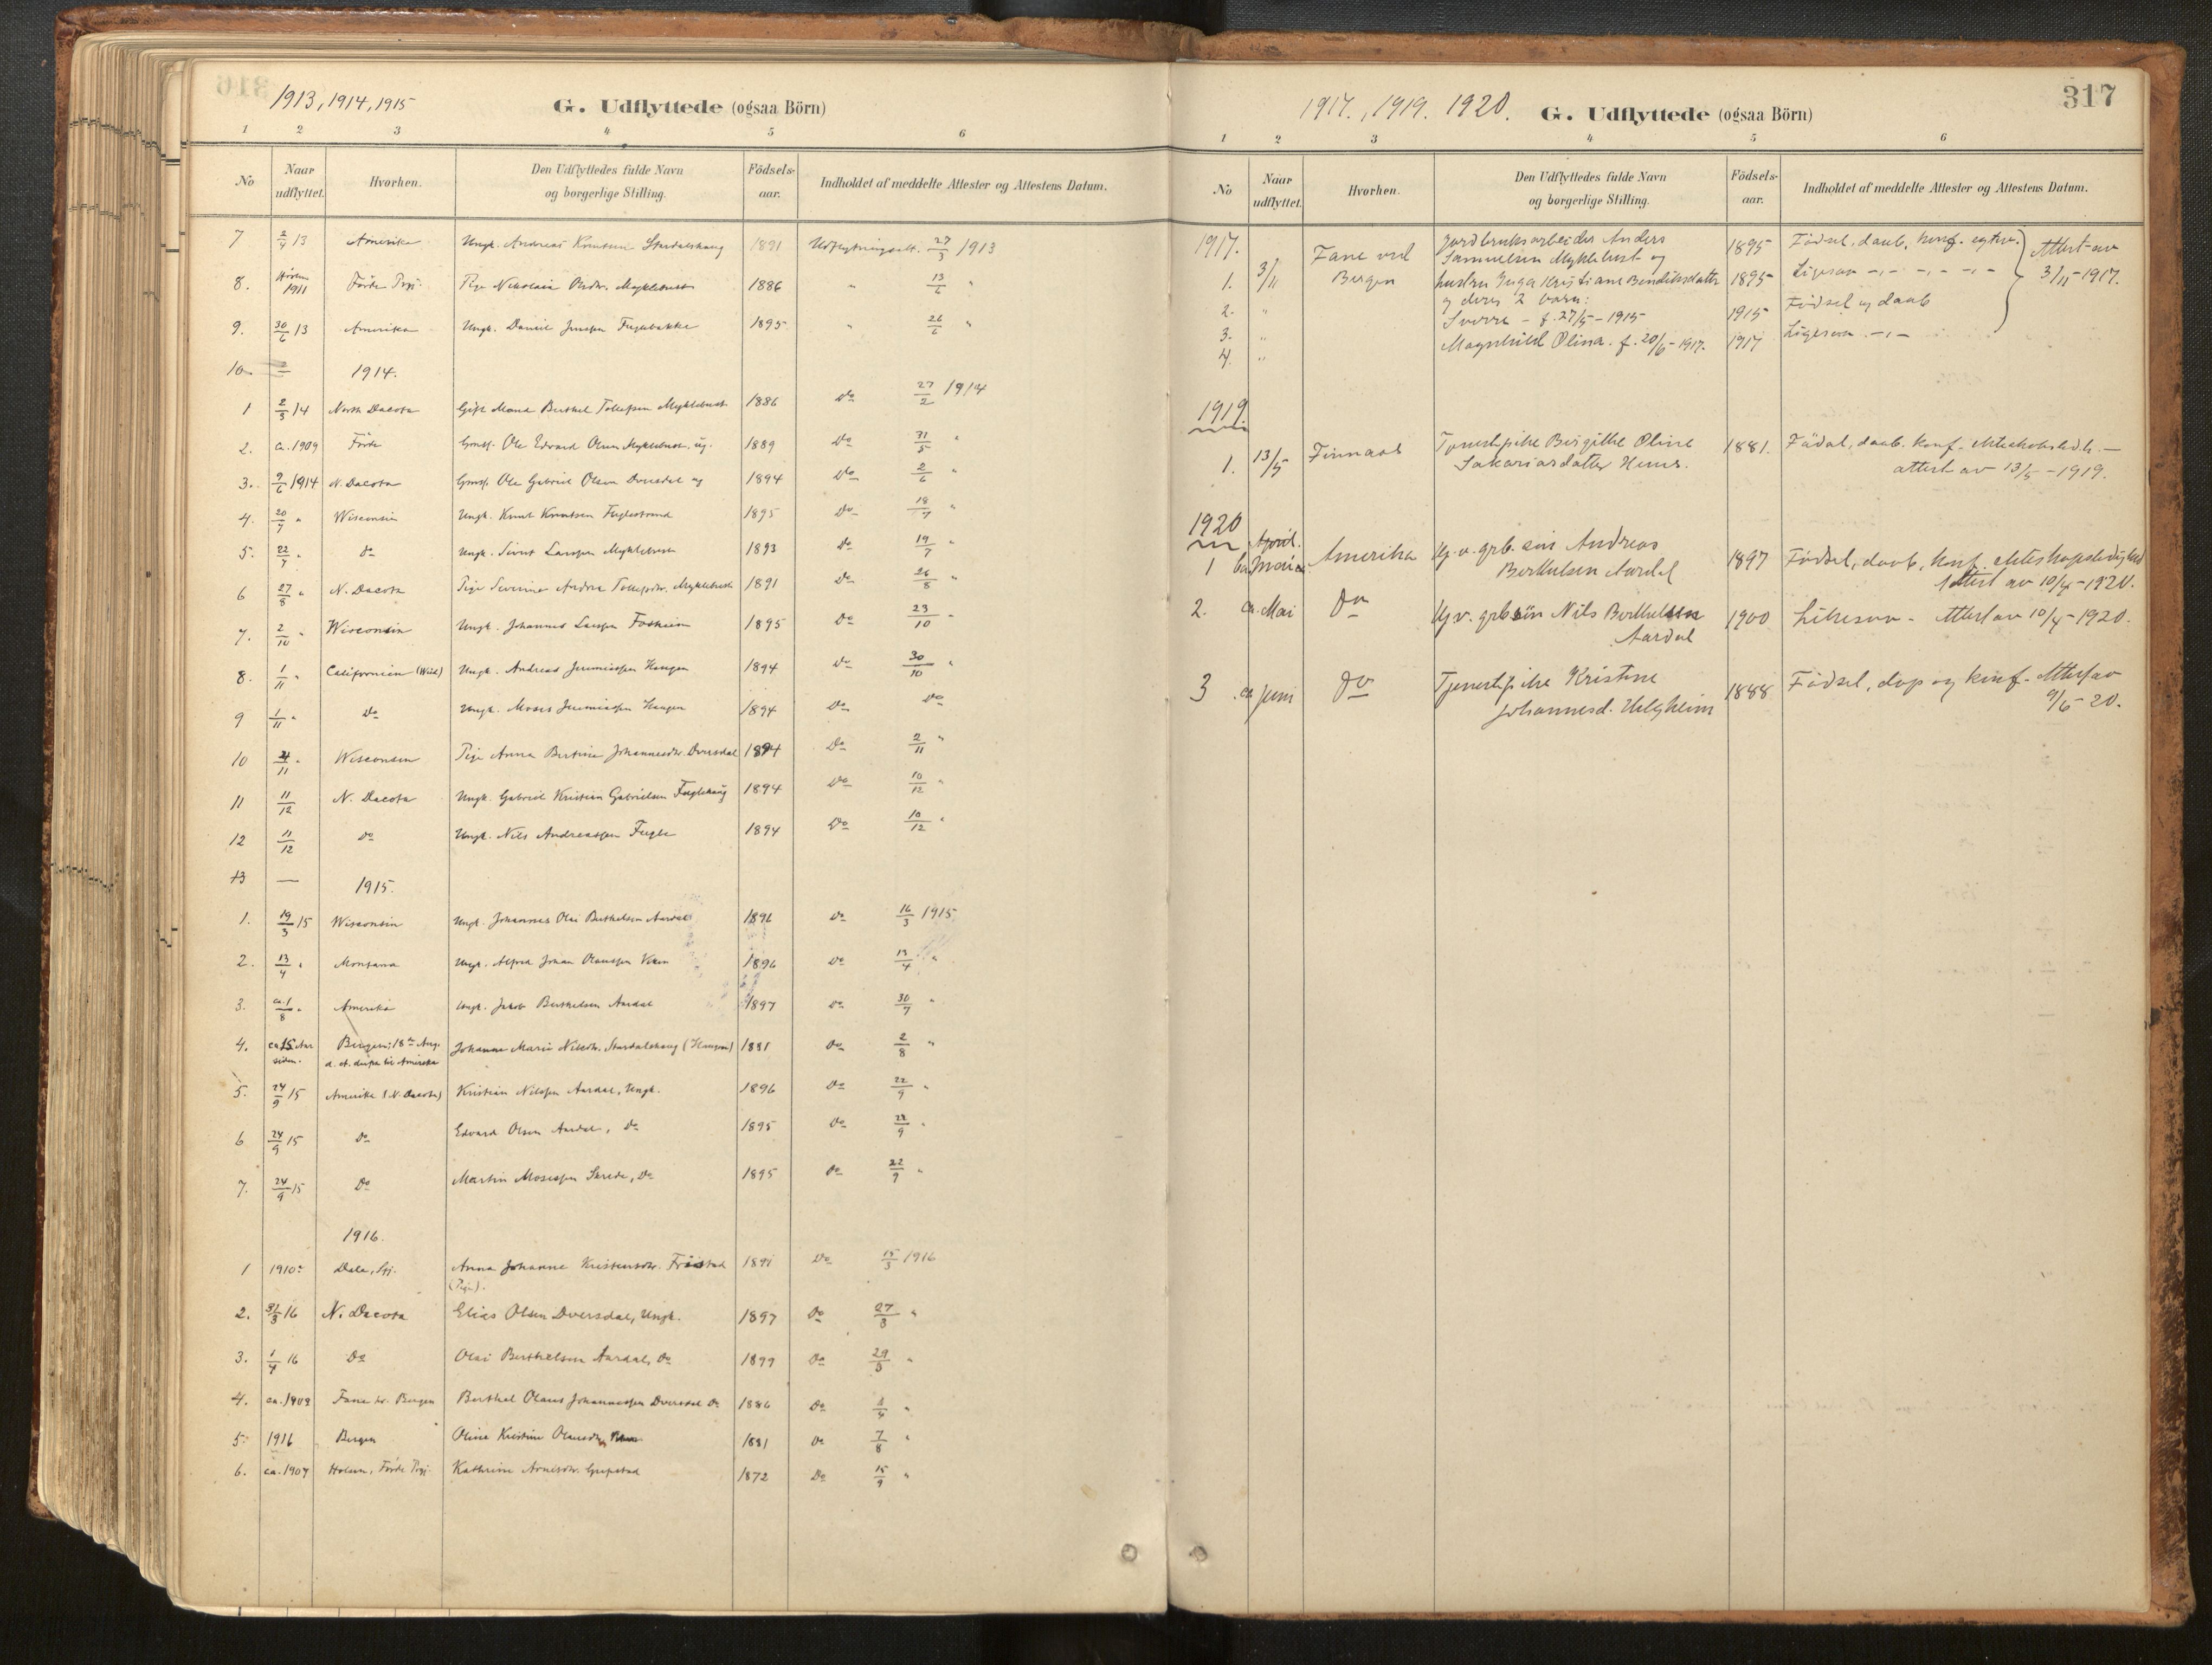 1913, 1914, 1915
G. Udflyttede (ogsaa Börn)
1 2 3 4 5 6
No Naar udflyttet. Hvorhen. Den Udflyttedes fulde Navn og borgerlige Stilling. Födsels-aar. Indholdet af meddelte Attester og Attestens Datum.
7 2/4 13 Amerika Ungk. Andreas Knutsen Stardalshaug 1891 Udflytningsatt. 27/3 1913
8. Hösten 1911 Förde Prgj. Pige Nikolaia Mykl​ebust 1886 " 13/6 "
9. 30/6 13 Amerika Ungk. Daniel Jensen Fuglebakke 1895 " 26/6 "
10 — 1914.
1 2/3 14 North Dacota Gift Mand Berthel Tollefsen Myklebust 1886 Do 27/2 1914
2. ca. 1909 Förde Ole Edvard Olsen Myklebust, ug. 1889 Do 31/5 "
3. 9/6 1914 N. Dacota Ole Gabriel Olsen Dversdal ug 1894 Do 2/6 "
4. 20/7 " Wisconsin Ungk. Knut Knutsen Fuglestrand 1895 Do 18/7 "
5. 22/7 " Do Ungk. Sivert Larssen Myklebust 1893 Do 19/7 "
6 27/8 " N. Dacota Pige Severine Andrea Tollefsdr. Myklebust 1891 Do 26/8 "
7. 2/10 " Wisconsin Ungk. Johannes Larssen Fosheim 1895 Do 23/10 "
8. 1/11 " Californien Ungk. Andreas Jeremiassen Haugen 1894 Do 30/10 "
9 1/11 " Do Ungk. Moses Jeremiassen Haugen 1894 Do Do
10 21/11 " Wisconsin Pige Anna Bertine Johannesdr. Dversdal 1894 Do 2/11 "
11 11/12 N. Dacota Ungk. Gabriel Kristian Gabrielsen Fuglehaug 1894 Do 10/12 "
12 11/12 Do Ungk. Nils Andreassen Fugle 1894 Do 10/12 "
13 — 1915.
1. 19/3 15 Wisconsin Ungk. Johannes Olai Berthelsen Aardal 1896 Do 16/3 1915
2. 13/4 " Montana Ungk. Alfred Johan Olaussen 1896 Do 13/4 "
3. ca. 1/8 " Amerika Ungk. Jakob Berthelsen Aardal 1897 Do 30/7 "
4. ca 15 Aar siden. Bergen; 18de Aug. d. A. derfra til Amerika Johanne Marie Nilsdr. Stardalshaug (Haugen) 1881 Do 2/8 "
5. 24/9 15 Amerika (N. Dacota) Kristian Nilssen Aardal, Ungk. 1896 Do 22/9 "
6 24/9 15 Do Edvard Olsen Aardal, Do 1895 Do 22/9 "
7. 24/9 15 Do Martin Mosessen Skrede, Do 1895 Do 22/9 "
1916.
1 1910 Dale, Anna Johanne Kristensdr. Fristad (Pige). 1891 Do 15/3 1916
2. 31/3 16 N. Dacota Elias Olsen Dversdal, Ungk. 1897 Do 27/3 "
3. 1/4 16 Do Olai Berthelsen Aardal, Do 1899 Do 29/3 "
4. ca. 1908 Fane v. Bergen Berthel Olaus Johannessen Dversdal Do 1886 Do 1/4 "
5. 1916 Bergen Oline Kristine Olausdr. 1881 Do 7/8 "
6. ca. 1907 Holsen, Förde Prgj. Kathrine Arnesdr. Grepstad 1872 Do 15/9 "
317
1917., 1919. 1920.
G. Udflyttede (ogsaa Börn)
1 2 3 4 5 6
No Naar udflyttet. Hvorhen. Den Udflyttedes fulde Navn og borgerlige Stilling. Födsels-aar. Indholdet af meddelte Attester og Attestens Datum.
1917. Fane ved Jordbruksarbeider Anders 1895 Födsel, daab, konf. egtev. Attest av
Samuelsen Myklebust og
1. 3/11 Bergen hustru Inga Kristiane Bendiksdatter 1895 Ligesaa -,- -,- -,- 3/11-1917.
og deres 2 barn:
2. " Sverre - f. 27/5-1915 1915 Födsel og daab
3. " Magnhild Olina. f. 20/6-1917. 1917 Ligesaa -,-
4. "
1919.
1. 13/5 Finnaas Tjenestepike Birgitte Oline 1881. Födsel, daab. konf. ekteskabsledh. —
Sakariasdatter attest av 13/5-1919.
1920
1 April. ca. Amerika Ug. v. grb. sön Andreas 1897 Födsel, daab, konf. ekteskapsledighed
Berthelsen Aardal Attest av 10/4-1920.
2. ca. Mai Do Ug. v. grb. sön Nils Berthelsen 1900 Likesaa - Attest av 10/4-1920.
Aardal
3 ca Juni Do Tjenestepike Kristine 1888 Födsel, dap og konf. Attest av
Johannesd. Helgheim 9/6-20.